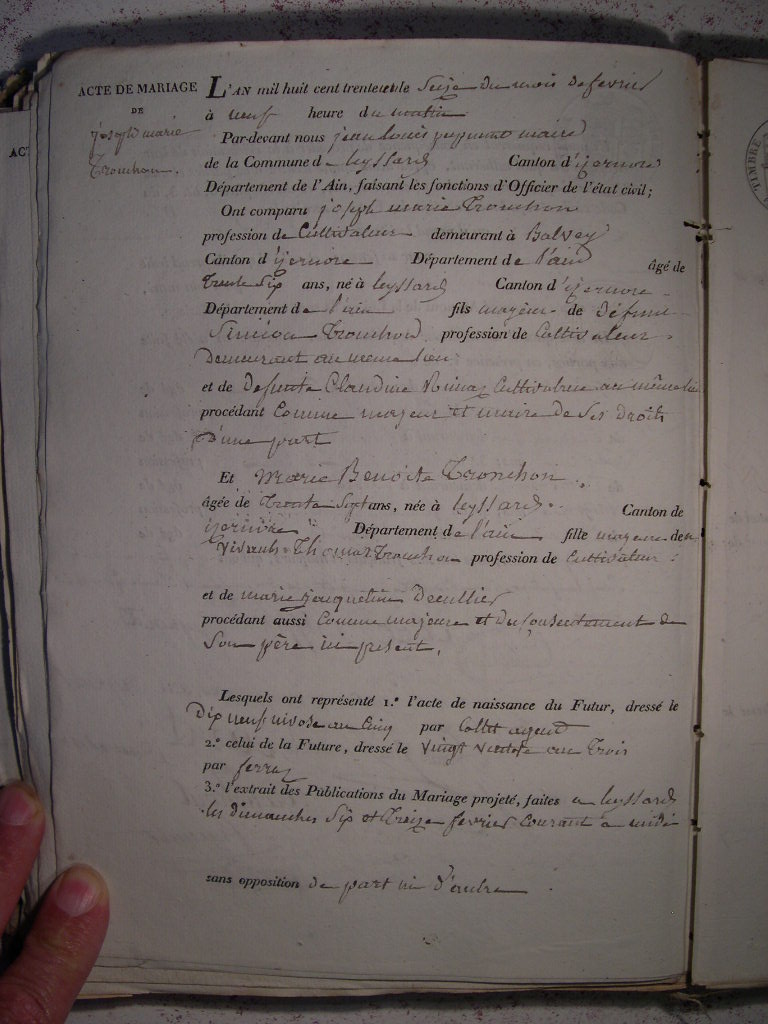 ACTE DE MARIAGE
DE
joseph marie
Tronchon.
AC
TIMBRE
L'AN mil huit cent trente et le Seize du mois de fevrier
à neuf heure du matin
Par-devant nous jean Louis maire
de la Commune de Leyssard Canton d'izernore
Département de l'Ain, faisant les fonctions d'Officier de l'état civil;
Ont comparu joseph marie Tronchon
profession de Cultivateur demeurant à Balvey
Canton d'izernore Département de l'ain âgé de
trente Six ans, né à leyssard Canton d'izernore
Département de l'ain fils majeur de Défunt
Siméon Tronchon profession de Cultivateur
Demeurant au meme lieu
et de Defunte Claudine Cultivatrice au même lieu
procédant Comme majeur et maire de Ses Droits
D'une part
Et Marie Benoite Tronchon
âgée de Trente Sept ans, née à leyssard Canton de
izernore Département de l'ain fille majeure de
vivant Thomas Tronchon profession de Cultivateur
et de marie jacquetine Decullier
procédant aussi Comme majeure et Du Consentement de
Son père ici present,
Lesquels ont représenté 1.º l'acte de naissance du Futur, dressé le
Dix neuf nivose an Cinq par Collet agent
2.º celui de la Future, dressé le vingt ventose an Trois
par ferraz
3.º l'extrait des Publications du Mariage projeté, faites a leyssard
les dimanches Six et Treize fevrier Courant a midi
sans opposition de part ni d'autre